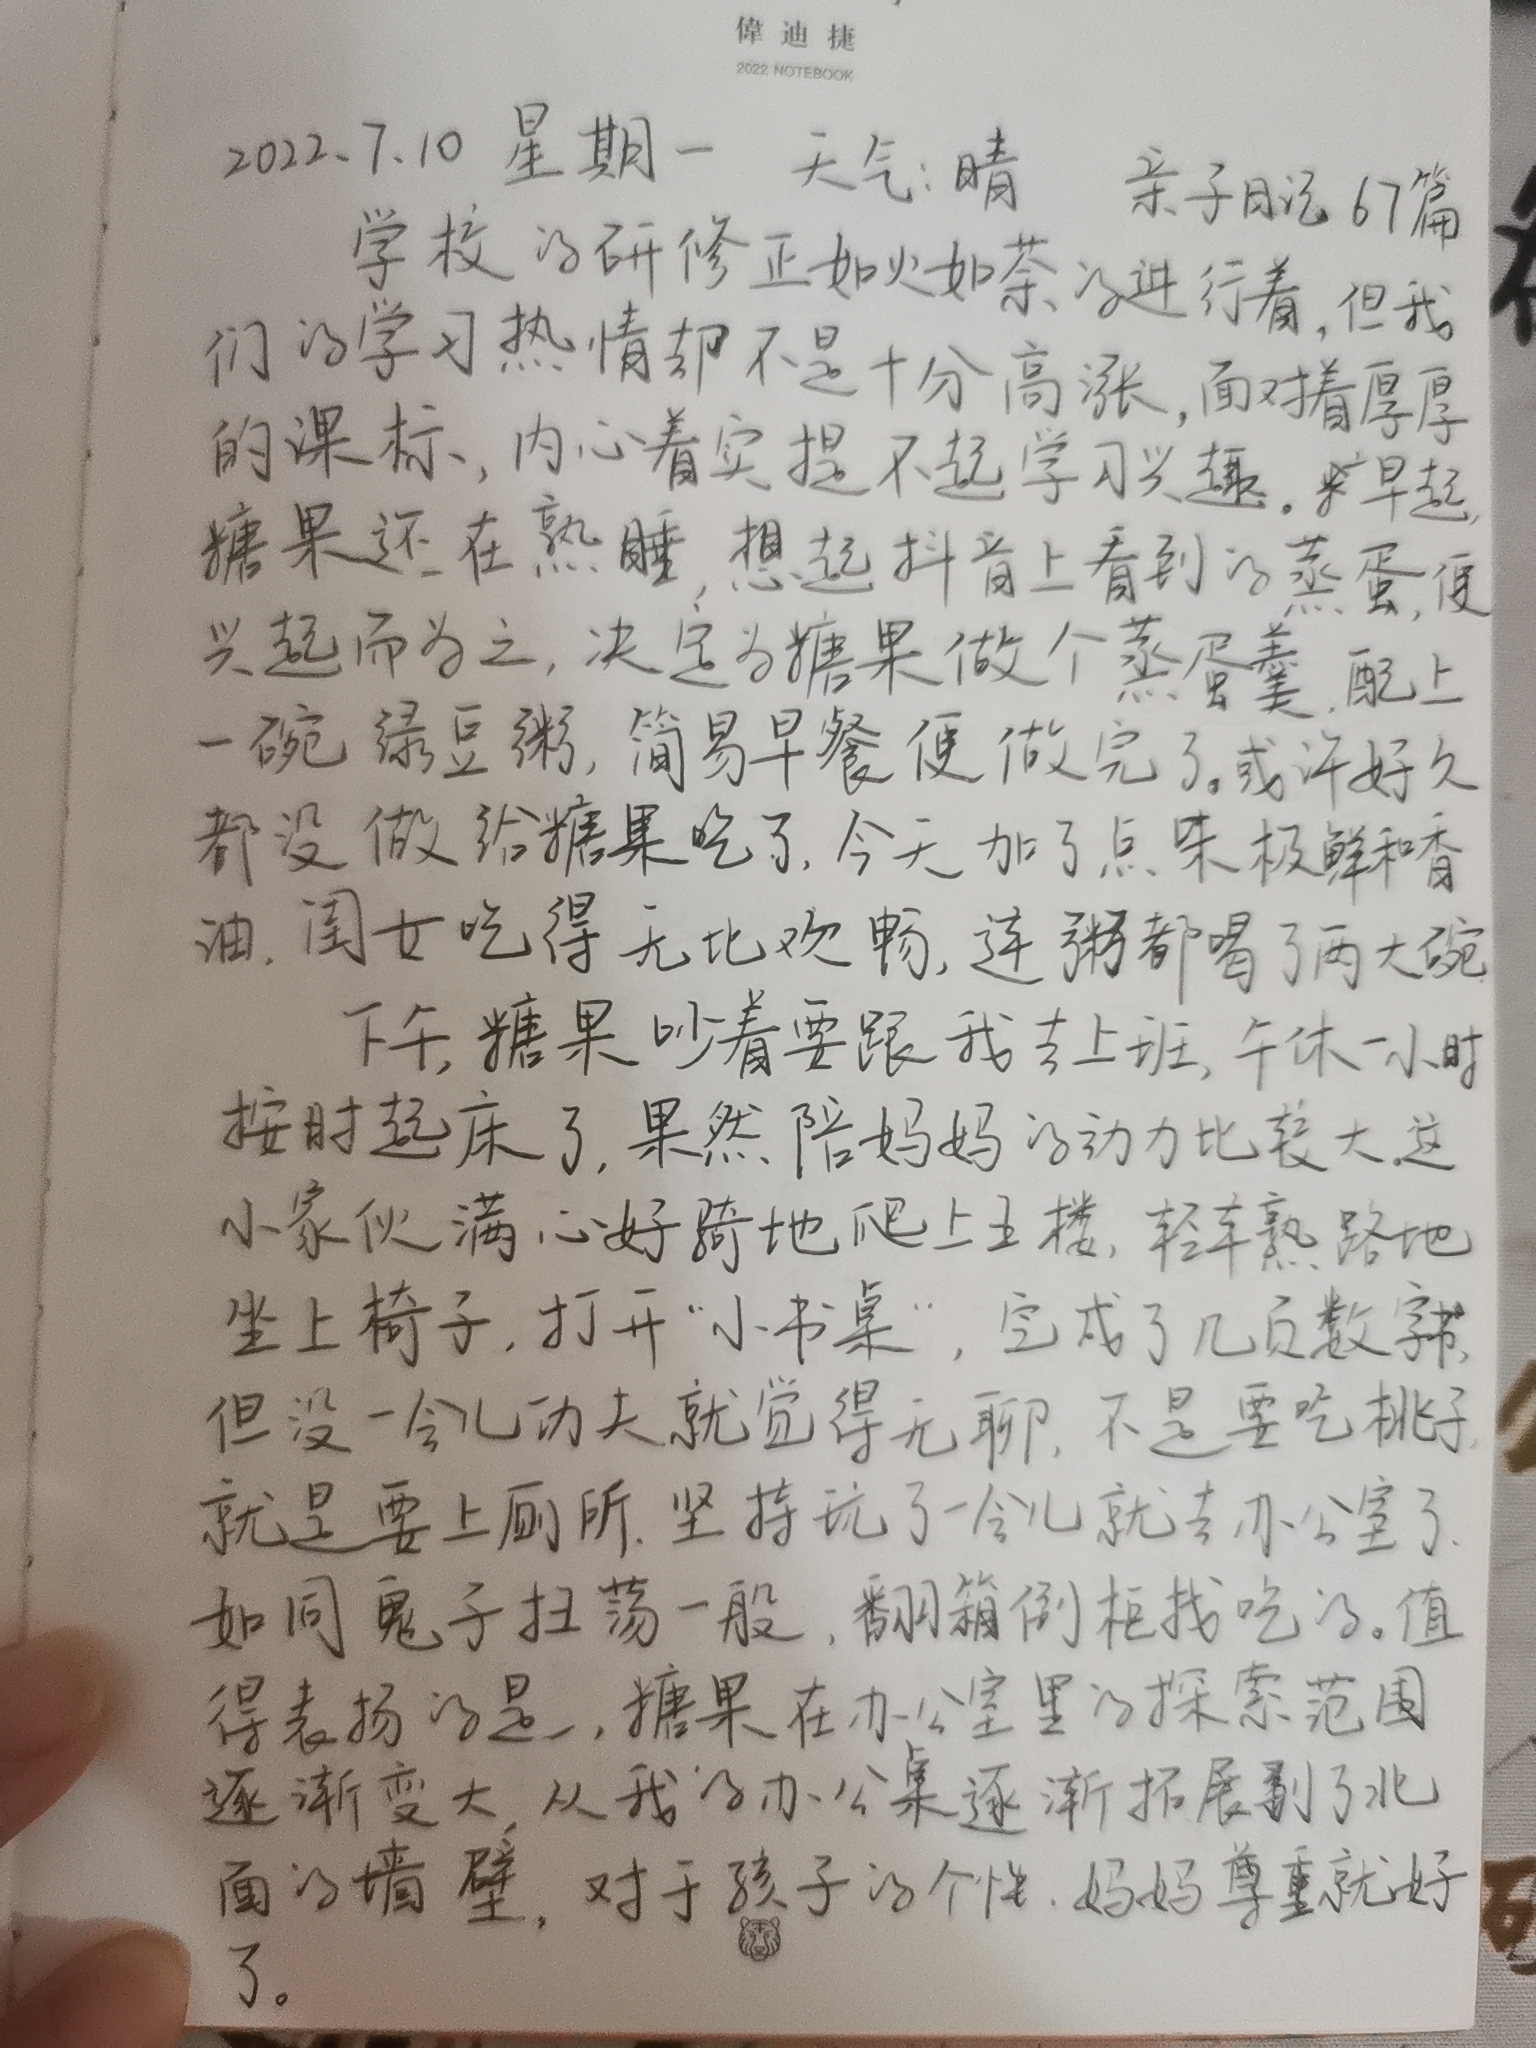 偉迪捷
2022 NOTEBOOK
2022、7、10 星期一 天气:晴 亲子日记 67篇
学校的研修正如火如荼的进行着,但我
们的学习热情却不是十分高涨,面对着厚厚
的课标,内心着实提不起学习兴趣。早起,
糖果还在熟睡,想起抖音上看到的蒸蛋,便
兴起而为之,决定为糖果做个蒸蛋羹,配上
一碗绿豆粥,简易早餐便做完了。或许好久
都没做给糖果吃了,今天加了点味极鲜和香
油,闺女吃得无比欢畅,连粥都喝了两大碗
下午,糖果吵着要跟我去上班,午休一小时
按时起床了,果然陪妈妈的动力比较大,这
小家伙满心好骑地爬上五楼,轻车熟路地
坐上椅子,打开“小书桌”,完成了几页数字书,
但没一会儿功夫就觉得无聊,不是要吃桃子,
就是要上厕所,坚持玩了一会儿就去办公室了,
如同鬼子扫荡一般,翻箱倒柜找吃的。值
得表扬的是,糖果在办公室里的探索范围
逐渐变大,从我的办公桌逐渐拓展到了北
面的墙壁,对于孩子的个性,妈妈尊重就好
了。